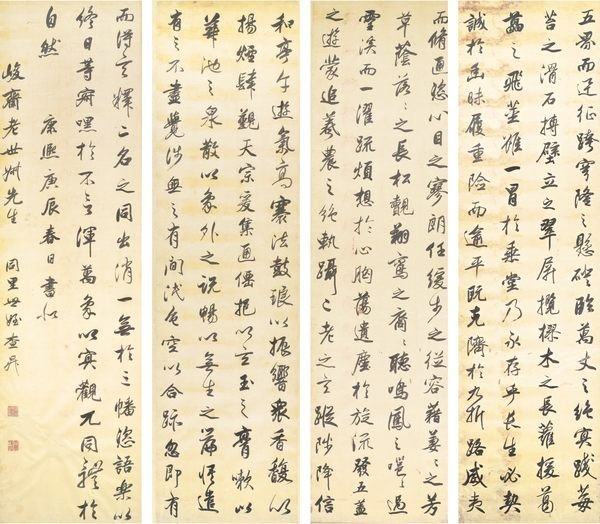 五界而迅征跨穹隆之懸磴臨萬丈之絕冥踐莓
苔之滑石搏壁立之翠屏攬樛木之長蘿援葛
藟之飛莖雖一冒於垂堂乃永存乎長生必契
誠於幽昧履重險而逾平既克隮於九折路威夷
而脩通恣心目之寥朗任緩步之從容藉萋萋之芳
草蔭落落之長松覿翔鸞之裔裔聽鳴鳳之嗈嗈過
靈溪而一濯疏煩想於心胸蕩遺塵於旋流發五蓋
之遊蒙追羲農之絕軌躡二老之玄蹤陟降信
和亭午遊氣高褰法鼓琅以振響衆香馥以
揚煙肆覲天宗爰集通僊挹以玄玉之膏嗽以
華池之泉散以象外之說暢以無生之篇悟遣
有之不盡覺涉無之有間泯色空以合跡忽即有
而得玄釋二名之同出消一無於三幡恣語樂以
終日等寂嘿於不言渾萬象以冥觀兀同體於
自然 康熙庚辰春日書似
峻齋老世叔先生 同里世姪查昇